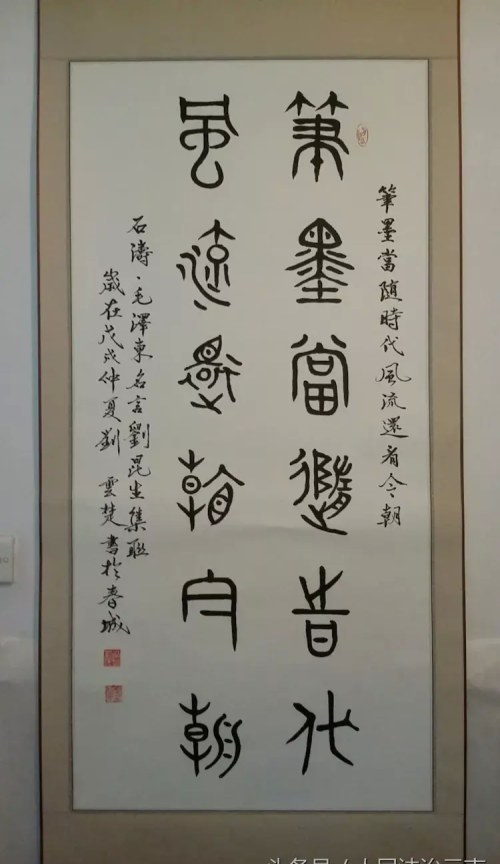 筆墨當随時代風流還看今朝
筆墨當隨時代
風流還看今朝
石濤·毛澤東名言劉昆生集聯
歲在戊戌仲夏劉雲楚書於春城